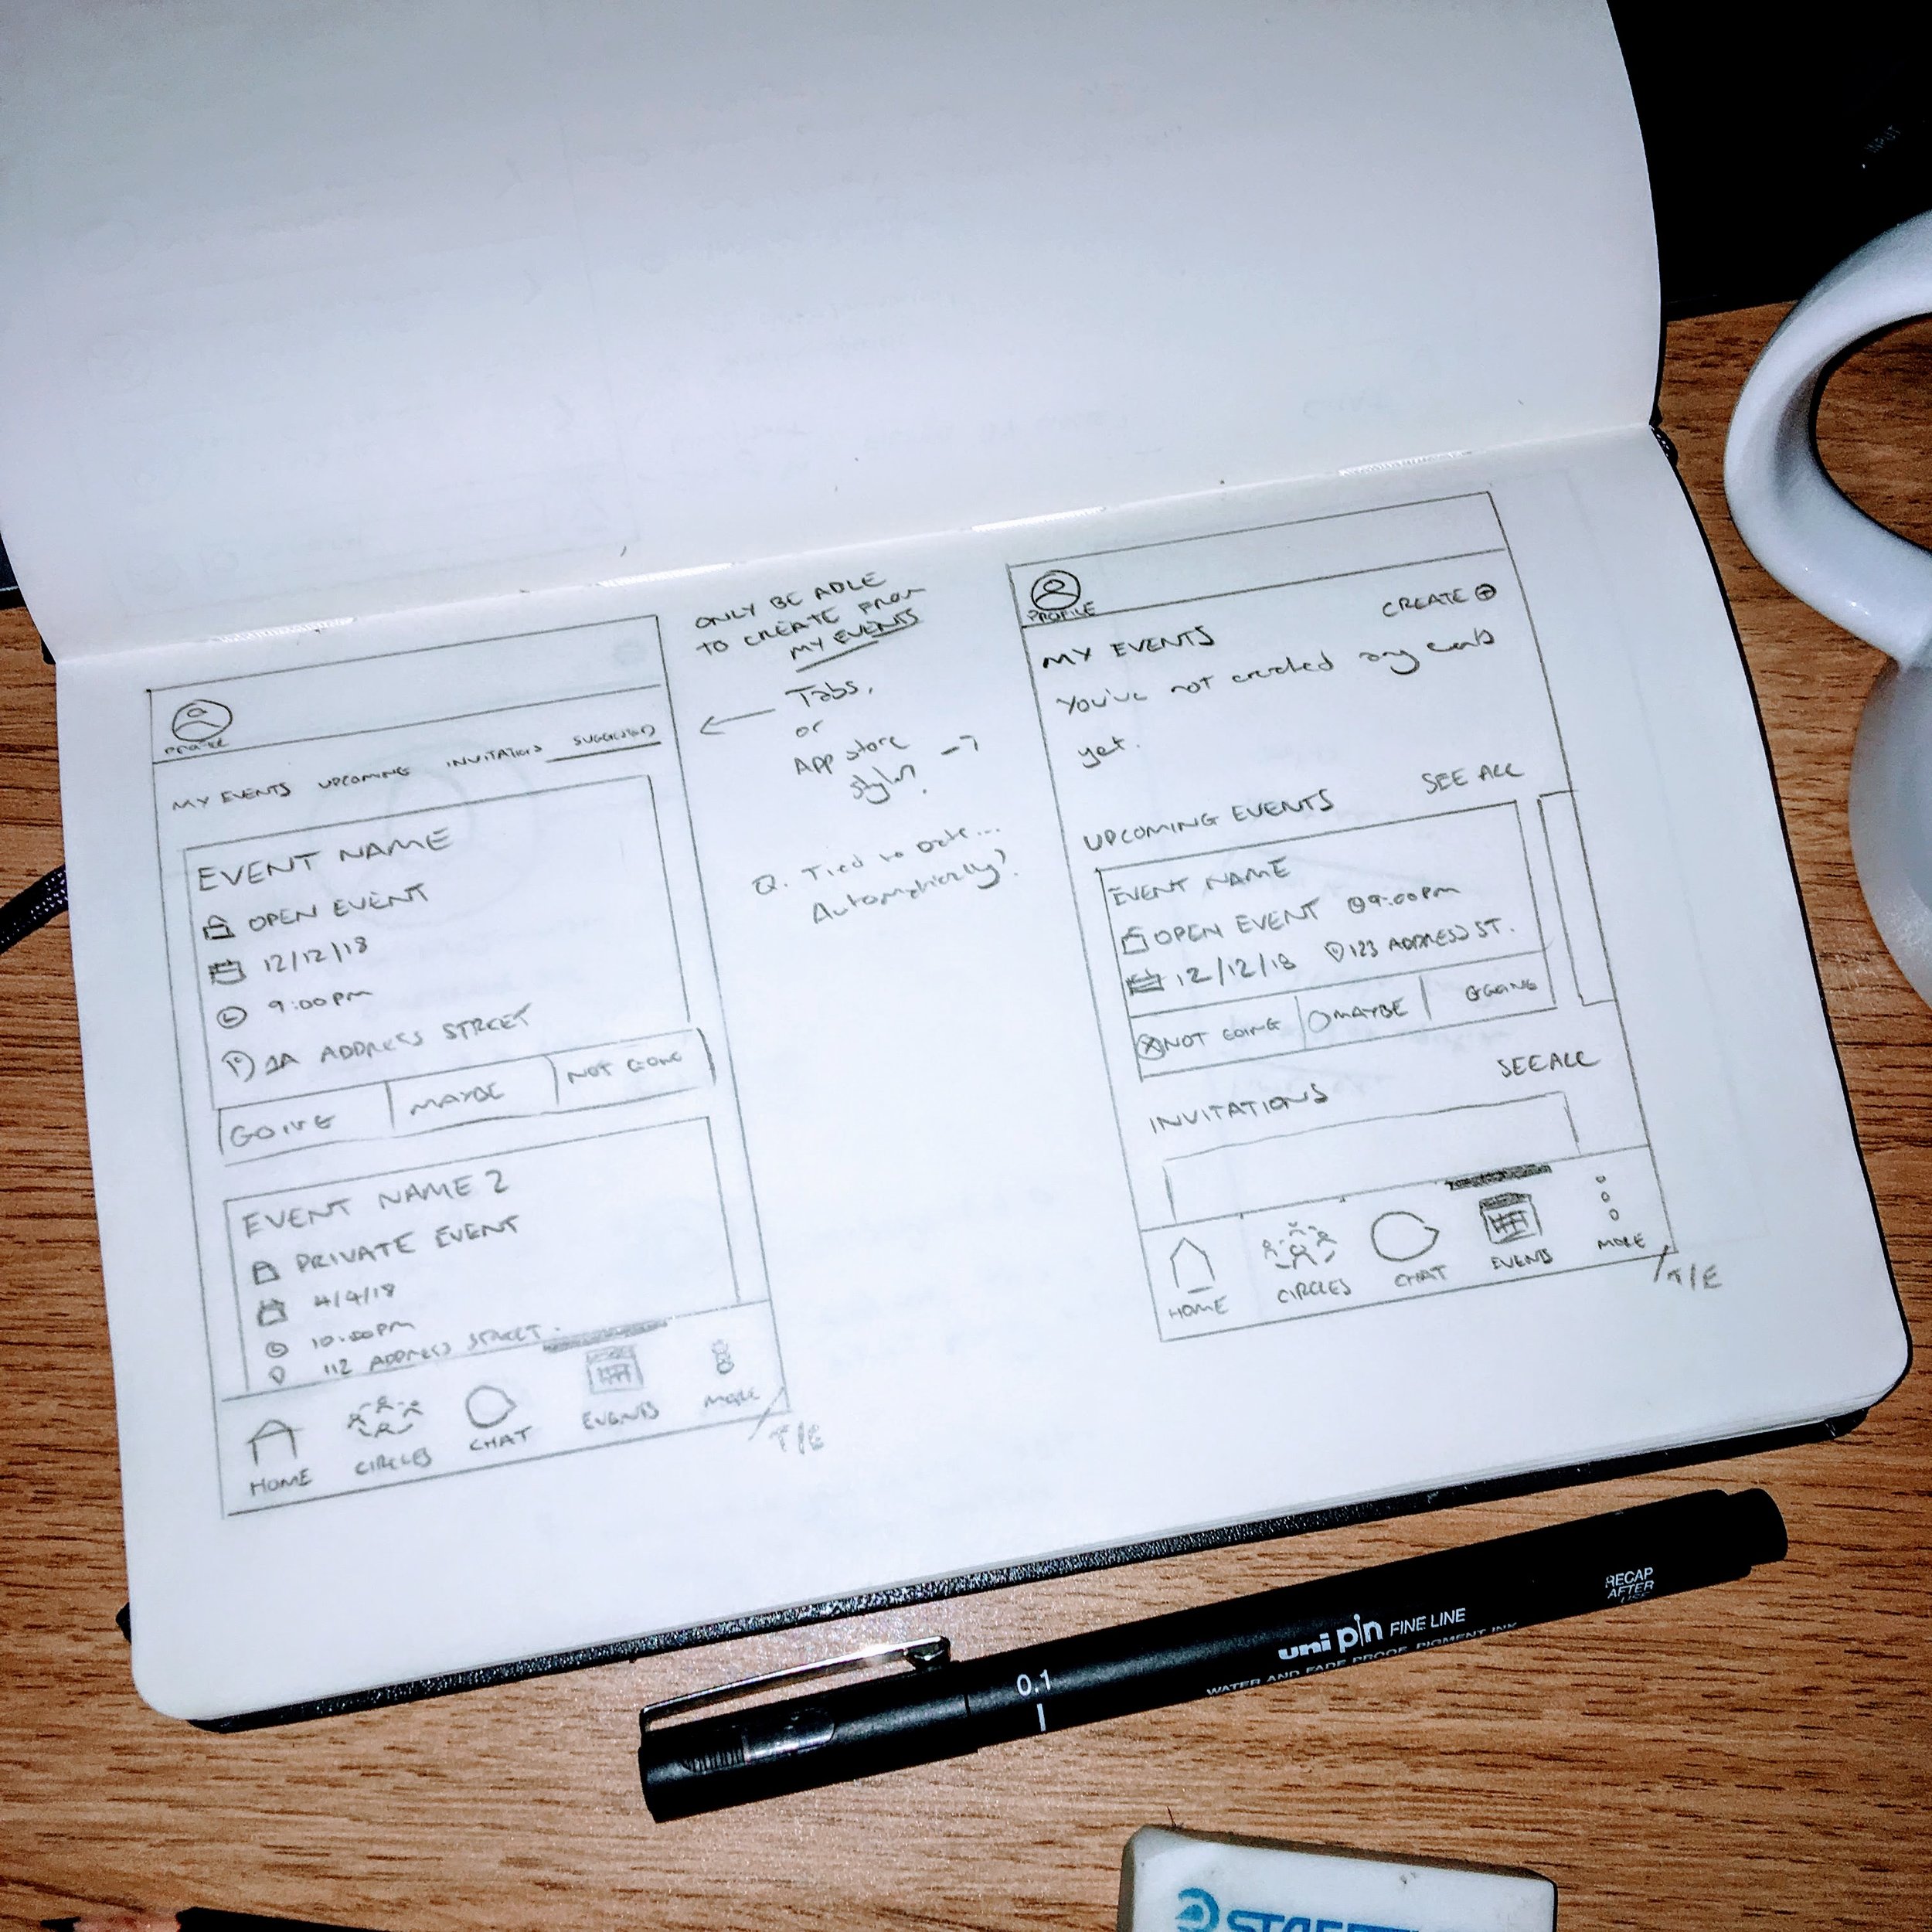 PROFILE
MY EVENTS UPCOMING INVITATIONS SUGGESTED
EVENT NAME
OPEN EVENT
12/12/18
9:00pm
1A ADDRESS STREET
GOING MAYBE NOT GOING
EVENT NAME 2
PRIVATE EVENT
4/4/18
10:00pm
112 ADDRESS STREET.
HOME CIRCLES CHAT EVENTS MORE
T/E
ONLY BE ABLE
TO CREATE FROM
MY EVENTS
Tabs,
or
App store
style?
Q. Tied to Date...
Automatically?
PROFILE
CREATE
MY EVENTS
You've not created any events
yet.
UPCOMING EVENTS SEE ALL
EVENT NAME
OPEN EVENT 9:00pm
12/12/18 123 ADDRESS ST.
NOT GOING MAYBE GOING
INVITATIONS SEE ALL
HOME CIRCLES CHAT EVENTS MORE
T/E
INPUT
0.1
uni pin FINE LINE
WATER AND FADE PROOF, PIGMENT INK
RECAP
AFTER
USE